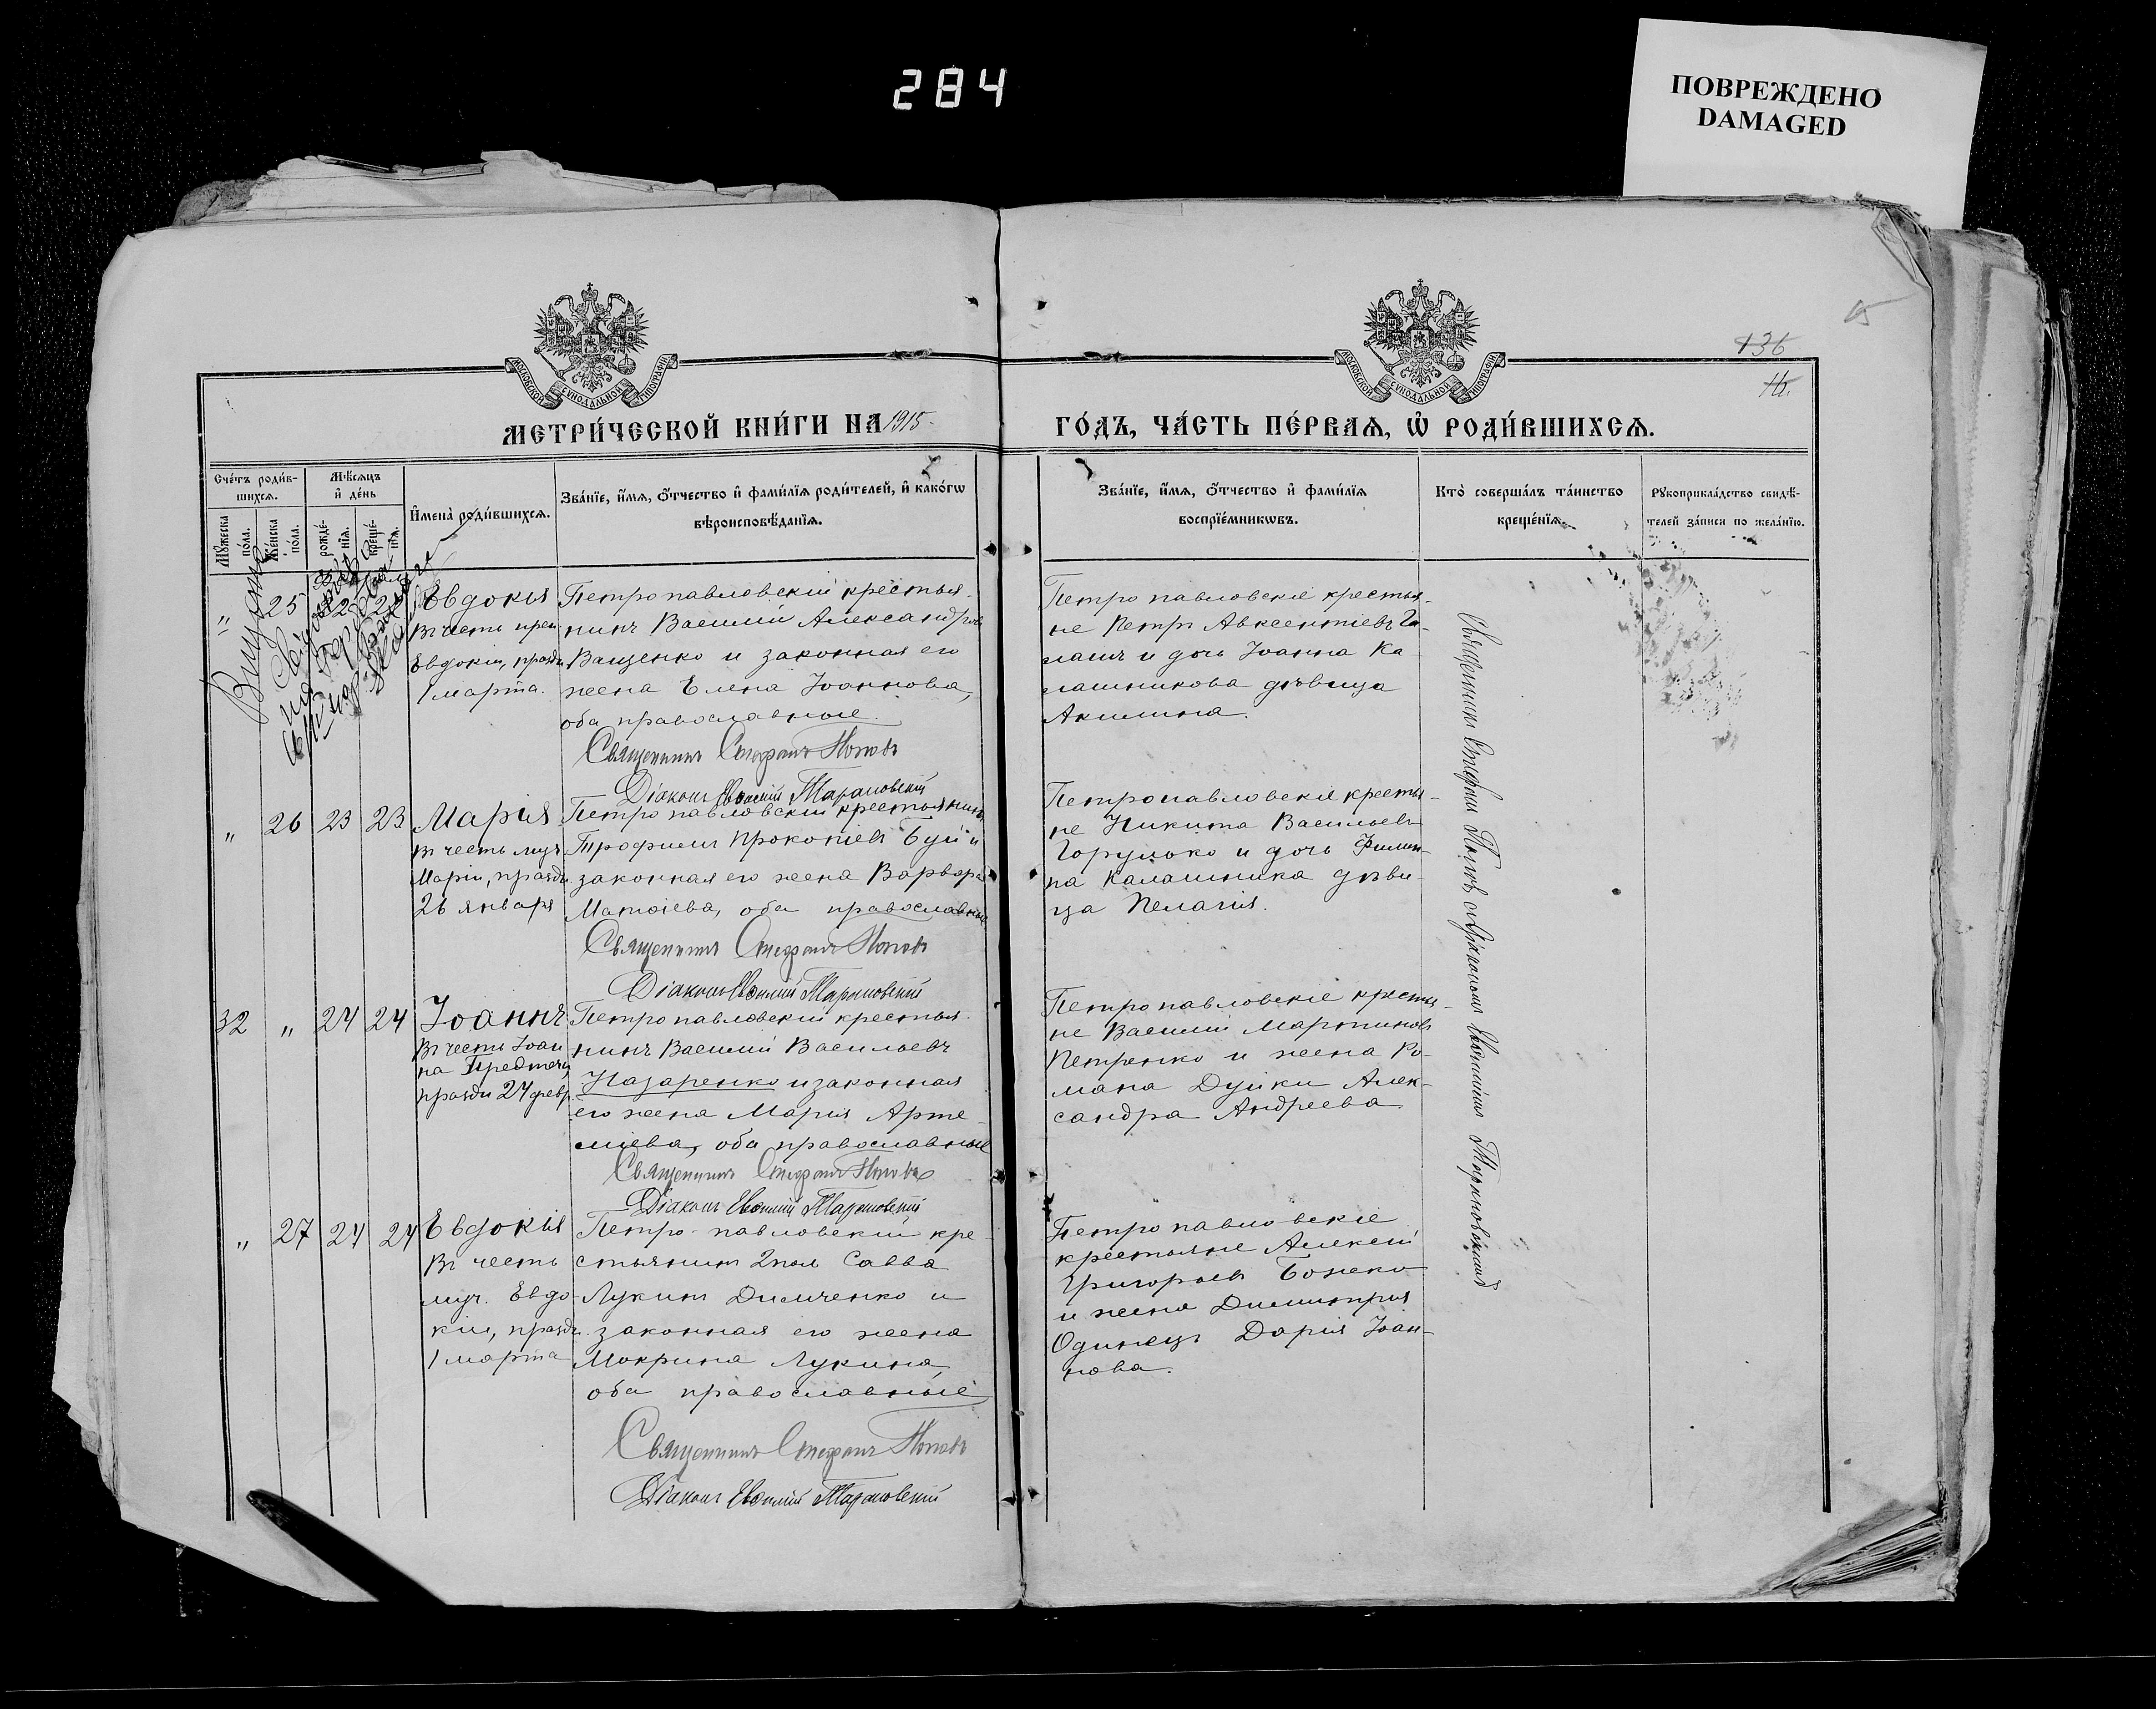 284
ПОВРЕЖДЕНО
DAMAGED
15
136
МОСКОВСКОЙ СУНОДАЛЬНОЙ ТИПОГРАФІИ
МОСКОВСКОЙ СУНОДАЛЬНОЙ ТИПОГРАФІИ
МЕТРИ́ЧЕСКОЙ КНИ́ГИ НА 1915
ГО́ДЪ, ЧА́СТЬ ПЕ́РВАЯ, Ѡ҆ РОДИ́ВШИХСЯ.
Сче́тъ роди́в-
шихсѧ.
Мꙋ́жеска
по́ла.
Же́нска
по́ла.
Мѣ́сѧцъ
и҆ де́нь
рожде́-
нїѧ.
креще́-
нїѧ.
И҆мена̀ роди́вшихсѧ.
Зва́нїе, и҆́мѧ, ѻ҆́тчество и҆ фами́лїѧ роди́телей, и҆ како́гѡ
вѣроисповѣ́данїѧ.
Зва́нїе, и҆́мѧ, ѻ҆́тчество и҆ фами́лїѧ
воспрїе́мникѡвъ.
Кто̀ соверша́лъ та́инство
креще́нїѧ.
Рꙋкоприкла́дство свидѣ́-
телей за́писи по жела́нїю.
" 25 22 22 Евдокія
въ честь прем
Евдокіи, праздн
1 марта.
Петропавловскій крестья-
нинъ Василій Александровъ
Ващенко и законная его
жена Елена Іоаннова,
оба православные.
Священникъ Стефанъ Поповъ
Діаконъ Евѳимій Тарановскій
Петропавловскіе крестья-
не Петръ Авксентіевъ Га-
лашъ и дочь Іоанна Ка-
лашникова дѣвица
Акилина.
" 26 23 23 Марія
въ честь муч
Маріи, праздн.
26 января
Петропавловскій крестьянинъ
Трофимъ Прокопіевъ Буй и
законная его жена Варвара
Матѳіева, оба православные
Священникъ Стефанъ Поповъ
Діаконъ Евѳимій Тарановскій
Петропавловскіе крестья-
не Никита Васильевъ
Горулько и дочь Филип-
па Калашника дѣви-
ца Пелагія.
32 " 24 24 Іоаннъ
въ честь Іоан
на Предтечи,
праздн 24 февр.
Петропавловскій крестья-
нинъ Василій Васильевъ
Назаренко и законная
его жена Марія Арте-
міева, оба православные
Священникъ Стефанъ Поповъ
Діаконъ Евѳимій Тарановскій
Петропавловскіе крестья-
не Василій Мартиновъ
Петренко и жена Ро-
мана Дуйки Алек-
сандра Андреева.
" 27 24 24 Евдокія
въ честь
муч. Евдо-
кіи, праздн.
1 марта
Петро-павловскій кре-
стьянинъ Савва
Лукинъ Димченко и
законная его жена
Мокрина Лукина,
оба православные
Священникъ Стефанъ Поповъ
Діаконъ Евѳимій Тарановскій
Петропавловскіе
крестьяне Алексій
Григорьевъ Божко
и жена Димитрія
Одинецъ Дарія Іоан-
нова.
Священникъ Стефанъ Поповъ съ діакономъ Евѳиміемъ Тарановскимъ